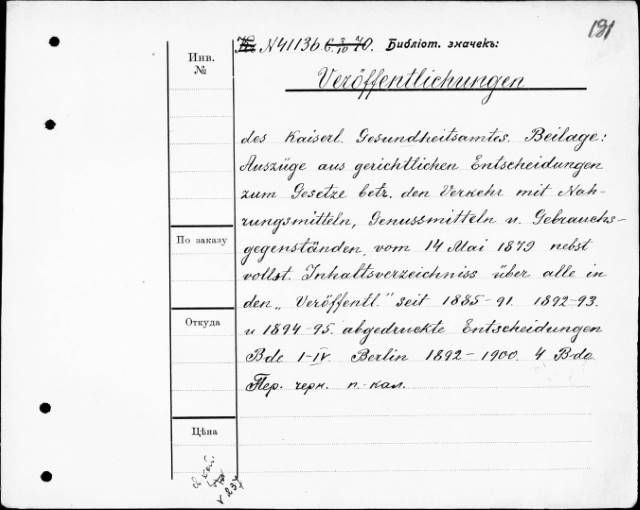 191
N 41136. Библіот. значекъ:
Инв.
№
Veröffentlichungen
des Kaiserl. Gesundheitsamtes. Beilage:
Auszüge aus gerichtlichen Entscheidungen
zum Gesetze betr. den Verkehr mit Nah-
rungsmitteln, Genussmitteln u. Gebrauchs-
gegenständen, vom 14 Mai 1879 nebst
По заказу
vollst. Inhaltsverzeichniss über alle in
den „Veröffentl." seit 1885-91. 1892-93.
Откуда
u 1894-95. abgedruckte Entscheidungen
Bde I-IV. Berlin 1892-1900. 4 Bde
Пер. черн. п.-кал.
Цѣна
v 237